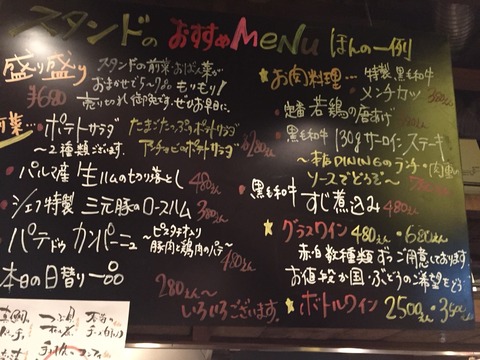 スタンドの おすすめ MENU ほんの一例
盛り盛り
¥680
スタンドの前菜・おばんざいが
おまかせで5〜7品 もりもり!
売り切れ御免です。ぜひお早目に。
前菜…
・ポテトサラダ
〜2種類ございます。
たまごたっぷりポテトサラダ
アンチョビのポテトサラダ
各280えん
・パルマ産 生ハムの切り落とし 480えん
・シェフ特製 三元豚のロースハム 380えん
・パテ ドゥ カンパーニュ 〜ピスタチオ入り
豚肉と鶏肉のパテ〜 480えん
本日の日替り一品
280えん〜
いろいろございます。
★お肉料理… 特製 黒毛和牛
メンチカツ
・定番 若鶏の唐あげ
・黒毛和牛 130g サーロインステーキ
〜本店DININGのランチ・肉重の
ソースでどうぞ〜
・黒毛和牛 すじ煮込み 480えん
★グラスワイン 480えん・680えん
赤白数種類ずつご用意しております
お値段か国・ぶどうのご希望をどうぞ
★ボトルワイン 2500えん・